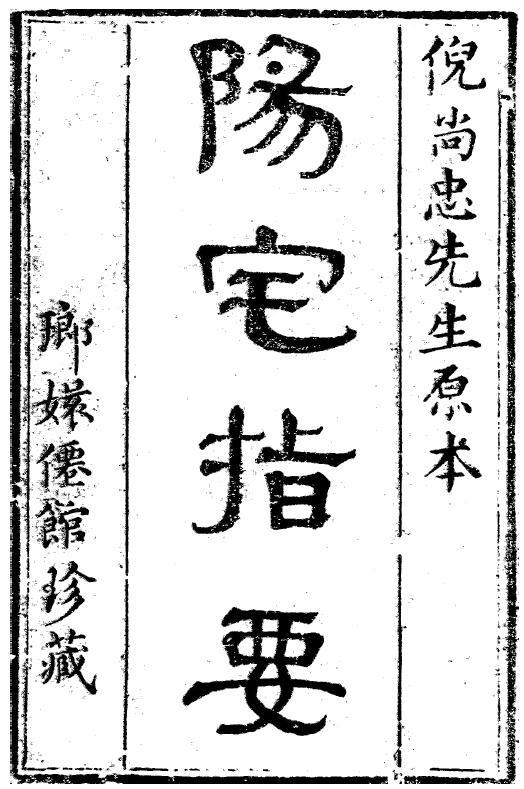 倪尚忠先生原本
陽宅指要
瑯嬛僊館珍藏